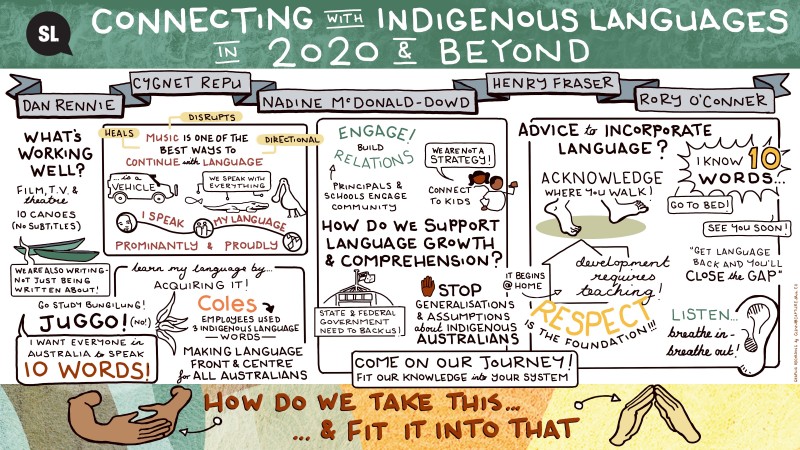 SL
CONNECTING WITH INDIGENOUS LANGUAGES
IN 2020 & BEYOND
DAN RENNIE
CYGNET REPU
NADINE McDONALD-DOWD
HENRY FRASER
RORY O'CONNER
WHAT'S
WORKING
WELL?
FILM, T.V. &
theatre
10 CANOES
(NO SUBTITLES)
WE ARE ALSO WRITING-
NOT JUST BEING
WRITTEN ABOUT!
GO STUDY BUNGILUNG!
JUGGO! (NO!)
I WANT EVERYONE in
AUSTRALIA to SPEAK
10 WORDS!
HEALS
DISRUPTS
DIRECTIONAL
MUSIC IS ONE OF THE
BEST WAYS TO
CONTINUE with LANGUAGE
...is a
VEHICLE
WE SPEAK WITH
EVERYTHING
I SPEAK
MY LANGUAGE
PROMINANTLY & PROUDLY
learn my language by...
ACQUIRING IT!
Coles
EMPLOYEES USED
3 INDIGENOUS LANGUAGE
WORDS
MAKING LANGUAGE
FRONT & CENTRE
for ALL AUSTRALIANS
ENGAGE!
BUILD
RELATIONS
PRINCIPALS &
SCHOOLS ENGAGE
COMMUNITY
WE ARE NOT A
STRATEGY!
CONNECT
TO KIDS
HOW DO WE SUPPORT
LANGUAGE GROWTH
& COMPREHENSION?
STATE & FEDERAL
GOVERNMENT
NEED TO BACK US!
STOP
GENERALISATIONS
& ASSUMPTIONS
about INDIGENOUS
AUSTRALIANS
COME ON OUR JOURNEY!
FIT OUR KNOWLEDGE into YOUR SYSTEM
ADVICE to INCORPORATE
LANGUAGE?
ACKNOWLEDGE
WHERE YOU WALK!
IT BEGINS
@ HOME
development
requires
teaching!
RESPECT
IS THE FOUNDATION!!!
I KNOW 10
WORDS...
GO TO BED!
SEE YOU SOON!
"GET LANGUAGE
BACK AND YOU'LL
CLOSE the GAP"
LISTEN...
breathe in -
breathe out!
HOW DO WE TAKE THIS...
... & FIT IT INTO THAT